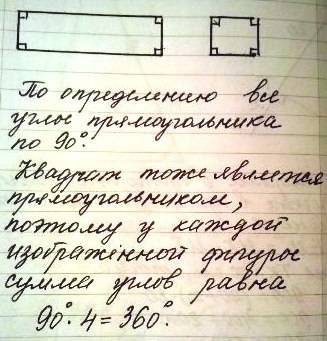 По определению все
углы прямоугольника
по 90°.
Квадрат тоже является
прямоугольником,
поэтому у каждой
изображённой фигуры
сумма углов равна
90°· 4 = 360°.